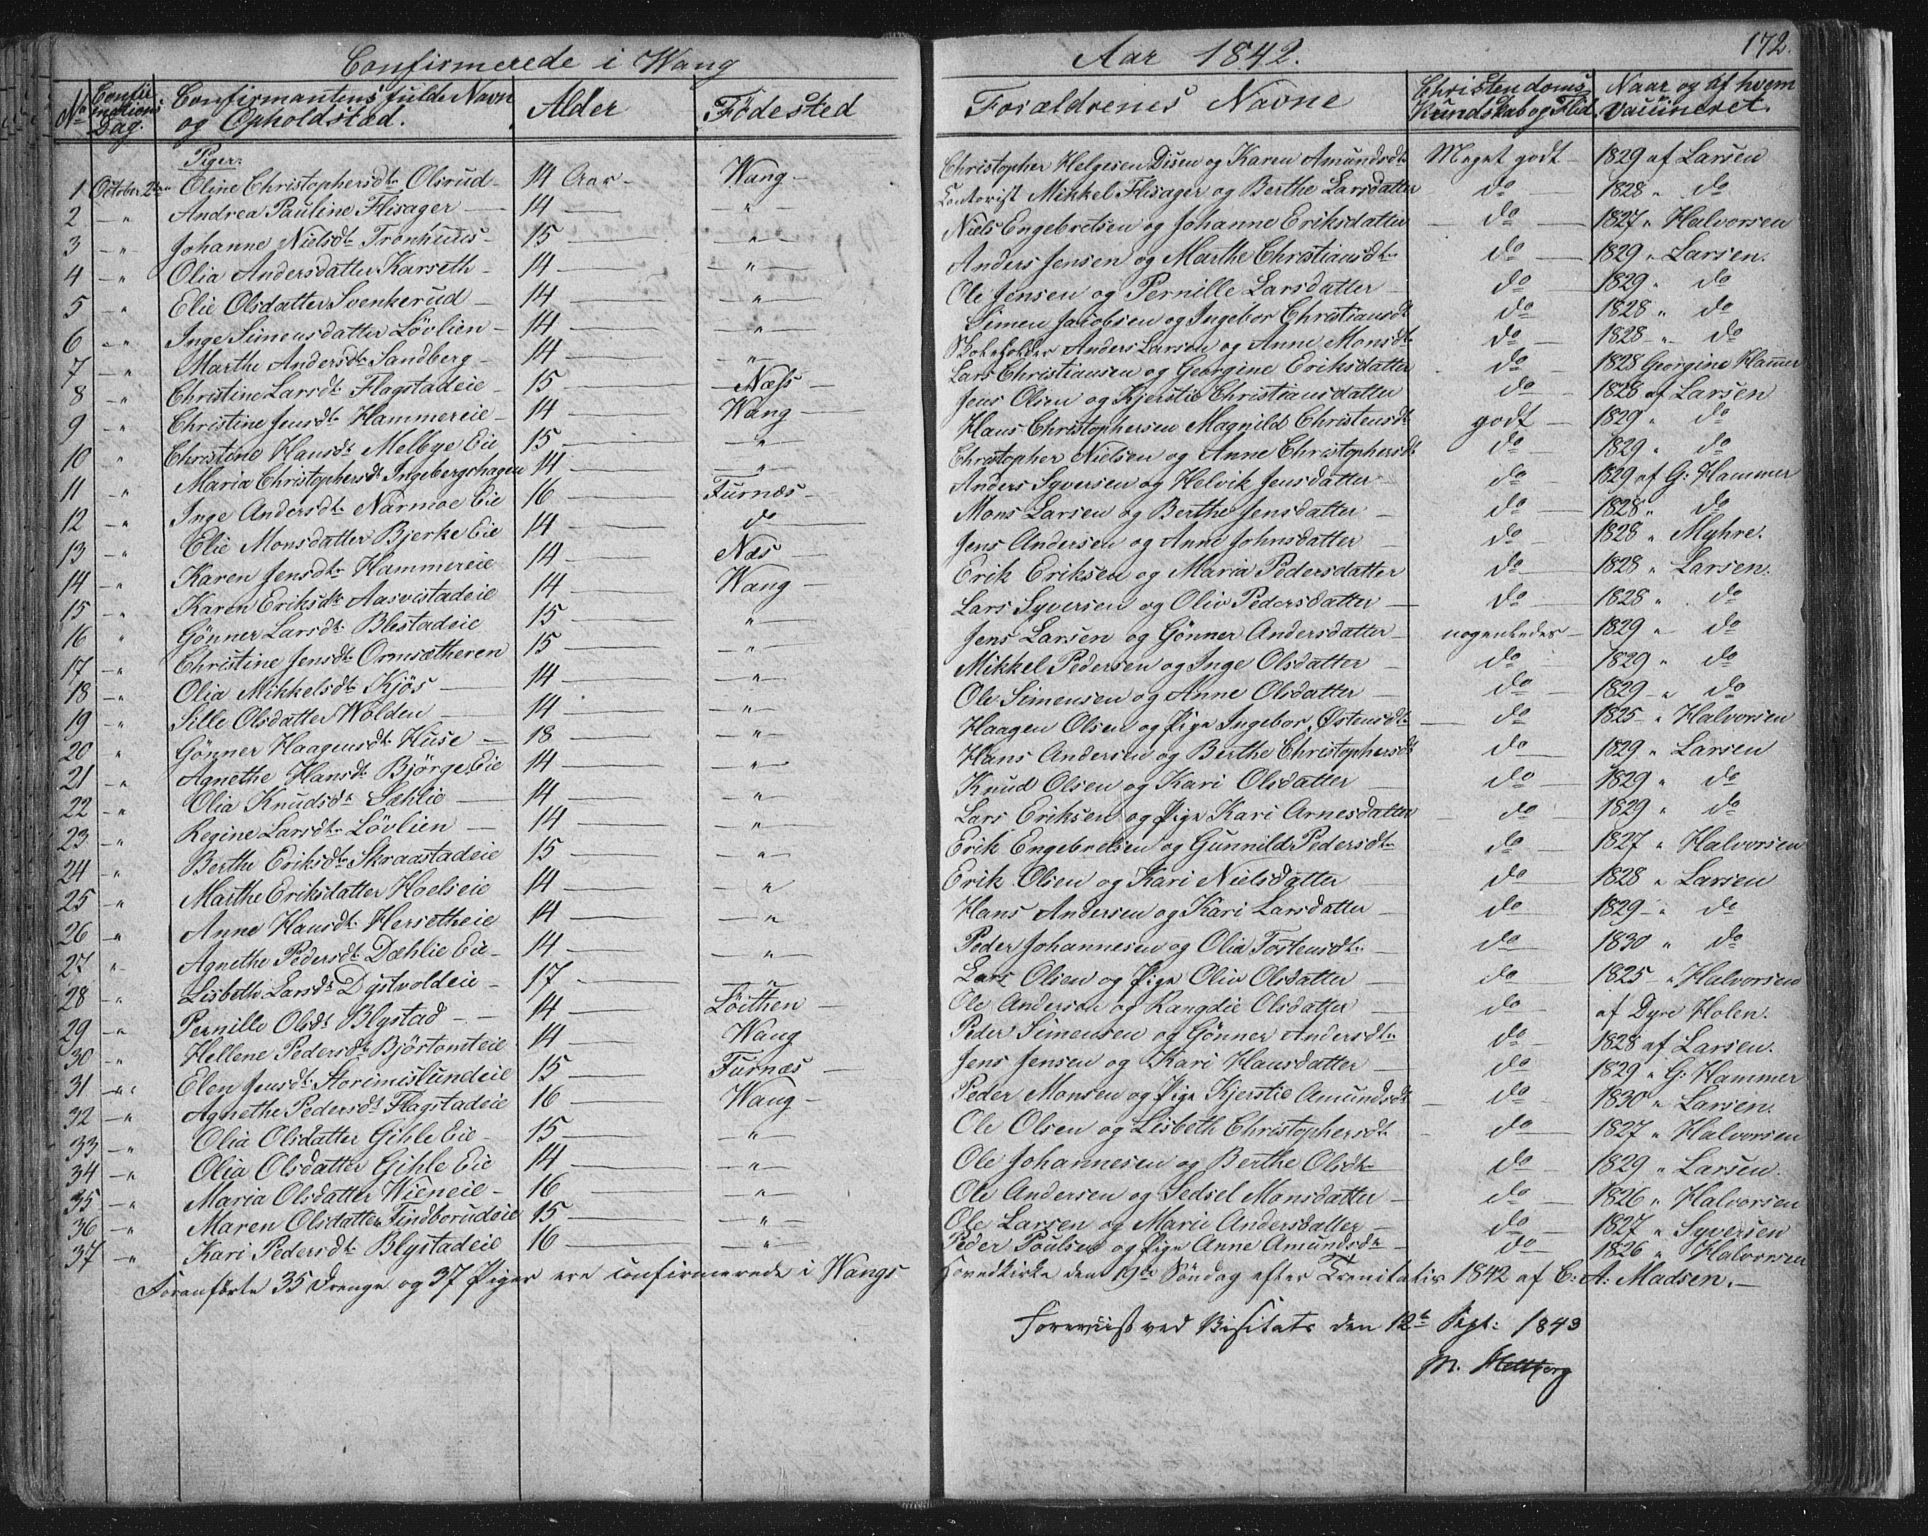 Confirmerede i Wang Aar 1842. 172.
No Confirmations Dag. Confirmantens fulde Navn og Opholdstæd. Alder Fødested Forældrenes Navne Christendoms Kundskab og Flid Naar og af hvem vaccineret.
Piger.
1 October 2den Oline Christophersdtr Olsrud 14 Aar Wang Christopher Helgesen Disen og Karen Amundsdtr Meget godt 1829 af Larsen
2 " Andrea Pauline Flisager 14 " Contorist Mikkel Flisager og Berthe Larsdatter do 1828 " do
3 " Johanne Nielsdtr Tronhuus 15 " Niels Engebretsen og Johanne Eriksdatter do 1827 " Halvorsen
4 " Olia Andersdatter Karseth 14 " Anders Jensen og Marthe Christiansdtr do 1829 " Larsen.
5 " Elie Olsdatter Svenkerud 14 " Ole Jensen og Pernille Larsdatter do 1829 " do
6 " Inge Simensdatter Lövlien 14 " Simen Jacobsen og Ingebor Christiansdtr do 1828 " do
7 " Marthe Andersdtr Sandberg 14 " Skoleholder Anders Larsen og Anne Monsdtr do 1828 " do
8 " Christine Larsdtr Flagstadeie 15 Næss Lars Christiansen og Georgine Eriksdatter do 1828 Georgine Hammer
9 " Christine Jensdtr Hammereie 14 Wang Jens Olsen og Kjerstie Christiansdatter do 1828 af Larsen
10 " Christine Hansdtr Melbye Eie 15 " Hans Christophersen Magnild Christensdtr godt 1829 " do
11 " Maria Christophersdtr Ingebergshagen 14 " Christopher Nielsen og Anne Christophersdtr do 1829 " do
12 " Inge Andersdtr Narmoe Eie 16 Furnæs Anders Syversen og Helvik Jensdatter do 1829 af G: Hammer
13 " Elie Monsdatter Bjerke Eie 14 do Mons Larsen og Berthe Jensdatter do 1828 " do
14 " Karen Jensdtr Hammereie 14 Næs Jens Andersen og Anne Johnsdatter do 1828 " Myhre.
15 " Karen Eriksdtr Aasvistadeie 14 Wang Erik Eriksen og Maria Pedersdatter do 1828 " Larsen.
16 " Gönner Larsdtr Blestadeie 15 " Lars Syversen og Oliv Pedersdatter do 1828 " do
17 " Christine Jensdtr Ormsætheren 15 " Jens Larsen og Gönner Andersdatter nogenledes 1829 " do
18 " Olia Mikkelsdtr Kjös 14 " Mikkel Pedersen og Inge Olsdatter do 1829 " do
19 " Sille Olsdatter Wolden 14 " Ole Simensen og Anne Olsdatter do 1829 " do
20 " Gönner Haagensdtr Huse 18 " Haagen Olsen og Pige Ingebor Østensdtr do 1825 " Halvorsen
21 " Agnethe Hansdtr Bjørge Eie 14 " Hans Andersen og Berthe Christophersdtr do 1829 " Larsen
22 " Olia Knudsdtr Sæhlie 14 " Knud Olsen og Kari Olsdatter do 1829 " do
23 " Regine Larsdtr Lövlien 14 " Lars Eriksen og Pige Kari Arnesdatter do 1829 " do
24 " Berthe Eriksdtr Skraastadeie 15 " Erik Engebretsen og Gunnild Pedersdtr do 1827 " Halvorsen
25 " Marthe Eriksdatter Hoelseie 14 " Erik Olsen og Kari Nielsdatter do 1828 " Larsen
26 " Anne Hansdtr Hersetheie 14 " Hans Andersen og Kari Larsdatter do 1829 " do
27 " Agnethe Pedersdtr Dæhlie Eie 14 " Peder Johannesen og Olia Tostensdtr do 1830 " do
28 " Lisbeth Larsdtr Dystvoldeie 17 " Lars Olsen og Pige Oliv Olsdatter do 1825 " Halvorsen
29 " Pernille Olsdtr Blystad 14 Löithen Ole Andersen og Rangdie Olsdatter do af Dyre Holen.
30 " Hellene Pedersdtr Björtomteie 14 Wang Peder Simensen og Gönner Andersdtr do 1828 af Larsen.
31 " Elen Jensdtr Storimislundeie 15 Furnæs Jens Jensen og Kari Hansdatter do 1829 " G: Hammer
32 " Agnethe Pedersdtr Flagstadeie 16 Wang Peder Monsen og Pige Kjerstie Amundsdtr do 1830 " Larsen.
33 " Olia Olsdatter Gihle Eie 15 " Ole Olsen og Lisbeth Christophersdtr do 1827 " Halvorsen
34 " Olia Olsdatter Gihle Eie 14 " Ole Johannesen og Berthe Olsdtr do 1829 " Larsen.
35 " Maria Olsdatter Wieneie 16 " Ole Andersen og Sedsel Monsdatter do 1826 " Halvorsen
36 " Maren Olsdatter Findborudeie 15 " Ole Larsen og Marie Andersdatter do 1827 " Syversen
37 " Kari Pedersdtr Blystadeie 16 " Peder Poulsen og Pige Anne Amundsdtr do 1826 " Halvorsen
Foranförte 35 Drenge og 37 Piger ere confirmerede i Wangs Hovedkirke den 19de Söndag efter Trenitatis 1842 af C: A: Madsen.
Foreviist ved Visitats den 12te Sept: 1843